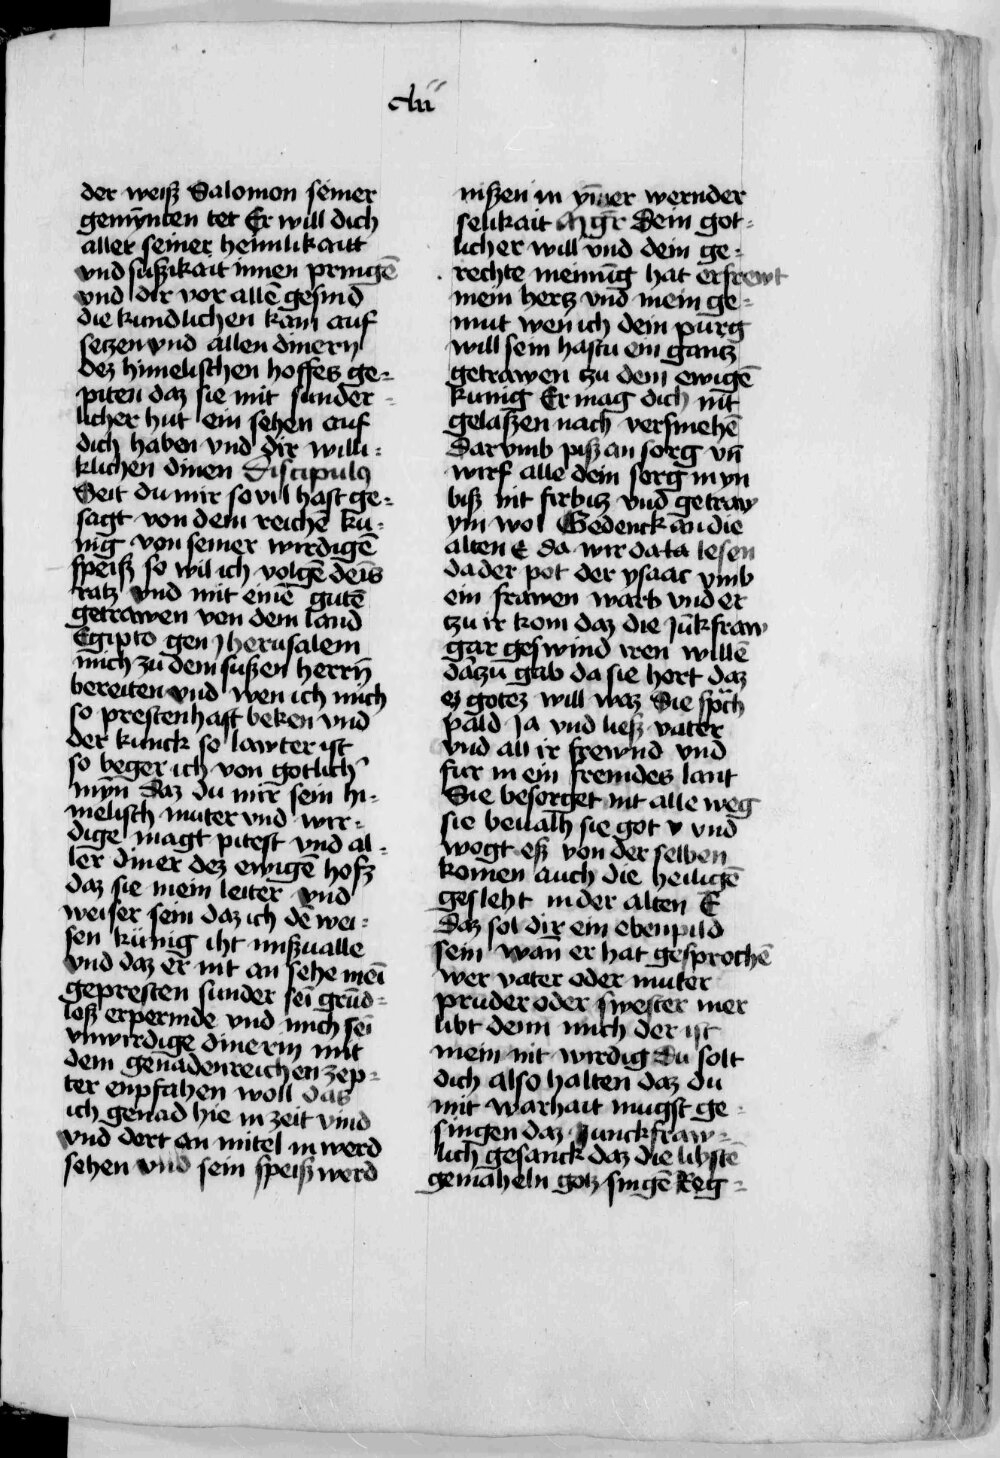 clii
der weiß Salomon seiner
gemȳnten tet Er will dich
aller seiner heimlikaitt
vnd sußzikait innen pringē
vnd dir vor allē gesind
die kundlichen kan auf
setzen vnd allen dinern
dez himelischen hoffes ge=
piten daz sie mit sunder=
licher hut ein sehen auf
dich haben vnd dir willi=
klichen dinen Discipulus
Seit du mir so vil hast ge=
sagt von dem reichē ku=
nig von seiner wirdigē
speiß so wil ich volgē deīs
ratz vnd mit einē gutē
getrawen von dem land
Egipto gen Jherusalem
mich zu dem sußen herrn̄
bereiten vnd wen ich mich
so prestenhaft beken vnd
der kunck so lawter ist
so beger ich von gotlich'
mȳn daz du mir sein hi=
melisch muter vnd wir=
dige magt pitest vnd al=
ler diner dez ewigē hofz
daz sie mein leiter vnd
weiser sein daz ich dē wei=
sen künig iht mißualle
vnd daz er nit an sehe meī
gepresten sunder seī grūd=
loß erpermde vnd mich seī
vnwirdige dinerin mit
dem genadenreichen zep=
ter enpfahen woll das
ich genad hie in zeit vind
vnd dert an mitel in werd
sehen vnd sein speiß werd
nißen in ȳmer wernder
selikait Mḡr Dein got=
licher will vnd dein ge=
rechte meinūg hat erfrewt
mein hertz vnd mein ge=
mut wen ich dein purg
will sein hastu ein gantz
getrawen tzu dem ewigē
kunig Er mag dich nit
gelaßen nach versmehē
Darvmb piß an sorg vn̄
wirf alle dein sorg in yn
biß nit firbitz vnd getraw
ym wol Gedenck an die
alten E da wir data lesen
da der pot der ysaac vmb
ein frawen warb vnd er
tzu ir kom daz die Jūkfraw
gar geswind iren willē
dazu gab da sie hort daz
ez gotez will waz Sie sprach
pald Ja vnd ließ vater
vnd all ir frewnd vnd
fur in ein fremdes lant
Sie besorget nit alle weg
sie beualh sie got v vnd
wogt eß von der selben
komen auch die heiligē
gesleht in der alten E
Daz sol dir ein ebenpild
sein wan er hat gesprochē
wer vater oder muter
pruder oder swester mer
libt denn mich der ist
mein nit wirdig Du solt
dich also halten daz du
mit warhait mugst ge=
singen daz Junckfraw=
lich gesanck daz die libstē
gemaheln gotz singē Reg=